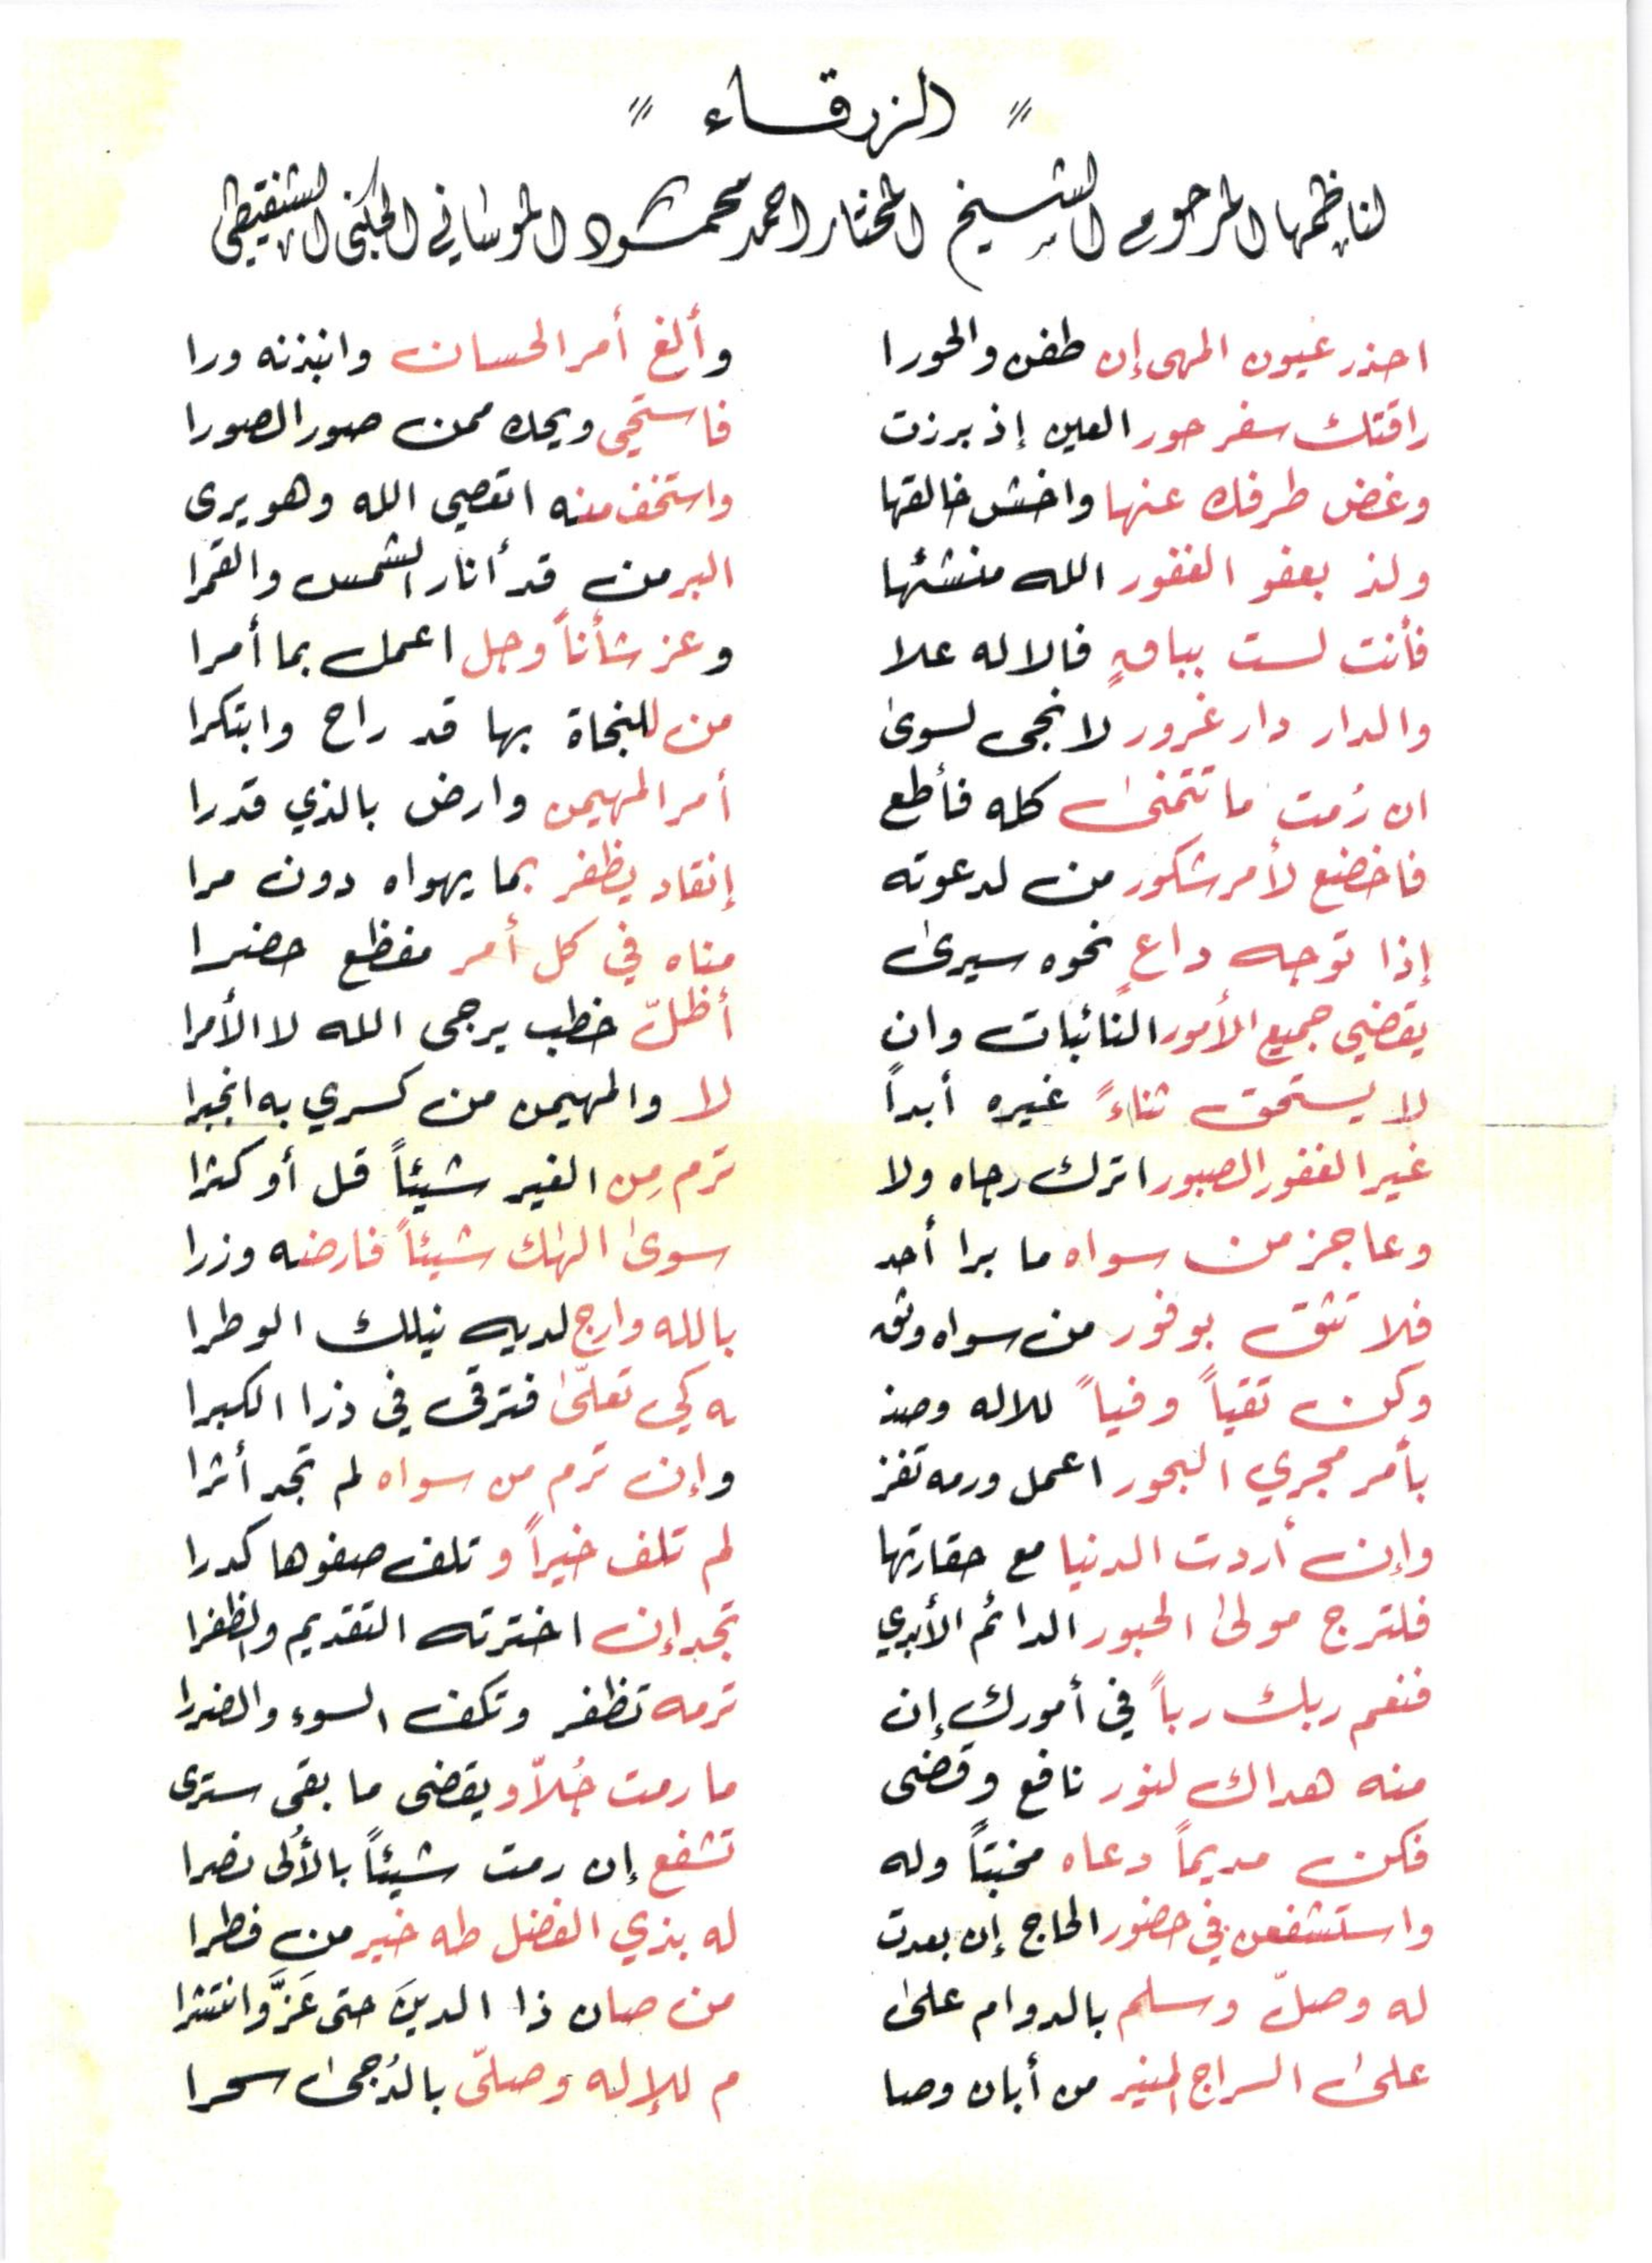 " الزرقاء "
لناظمها المرحوم الشيخ المختار احمد محمود الموساني الجكني الشنقيطي
احذر عيون المهى إن طفن والحورا وألغ أمر الحسان وانبذنه ورا
راقتك سفر حور العين إذ برزت فاستحي ويحك ممن صور الصورا
وغض طرفك عنها واخش خالقها واستخف منه اتعصي الله وهو يرى
ولذ بعفو الغفور الله منشئها البر من قد أنار الشمس والقمرا
فأنت لست بباقٍ فالاله علا وعز شأناً وجل اعمل بما أمرا
والدار دار غرور لا نجى لسوى من للنجاة بها قد راح وابتكرا
ان رُمت ما تتمنى كله فأطع أمر المهيمن وارض بالذي قدرا
فاخضع لأمر شكور من لدعوته إنقاد يظفر بما يهواه دون مرا
إذا توجه داعٍ نحوه سيرى مناه في كل أمر مفظع حضرا
يقضي جميع الأمور النائبات وان أظلّ خطب يرجى الله لا الأمرا
لا يستحق ثناءً غيره أبداً لا والمهيمن من كسري به انجبرا
غير الغفور الصبور اترك رجاه ولا ترم مِن الغير شيئاً قل أو كثرا
وعاجز من سواه ما برا أحد سوى الهك شيئاً فارضه وزرا
فلا تثق بوفور من سواه وثق بالله وارج لديه نيلك الوطرا
وكن تقياً وفياً للاله وصذ به كي تعلّى فترقى في ذرا الكبرا
بأمر مجري البحور اعمل ورمه تفز وإن ترم من سواه لم تجد أثرا
وإن أردت الدنيا مع حقارتها لم تلف خيراً وتلف صفوها كدرا
فلترج مولى الحبور الدائم الأبدي تجد إن اخترته التقديم والظفرا
فنعم ربك رباً في أمورك إن ترمه تظفر وتكف السوء والضررا
منه هداك لنور نافع وقضى ما رمت جُلاًّ ويقضى ما بقى سترى
فكن مديماً دعاه مخبتاً وله تشفع إن رمت شيئاً بالأُلى نصرا
واستشفعن في حضور الحاج إن بعدت له بذي الفضل طه خير من فطرا
له وصلّ وسلم بالدوام على من صان ذا الدينَ حتى عَزَّ وانتثرا
على السراج المنير من أبان وصا م للإله وصلّى بالدُجى سحرا